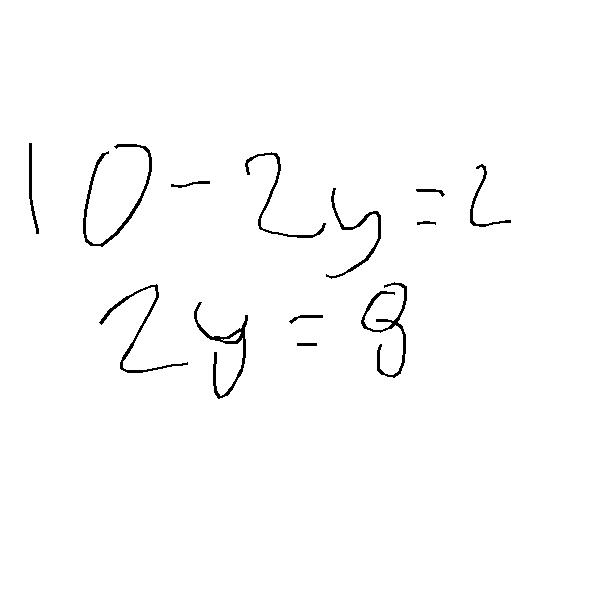 10-2y=2
2y=8